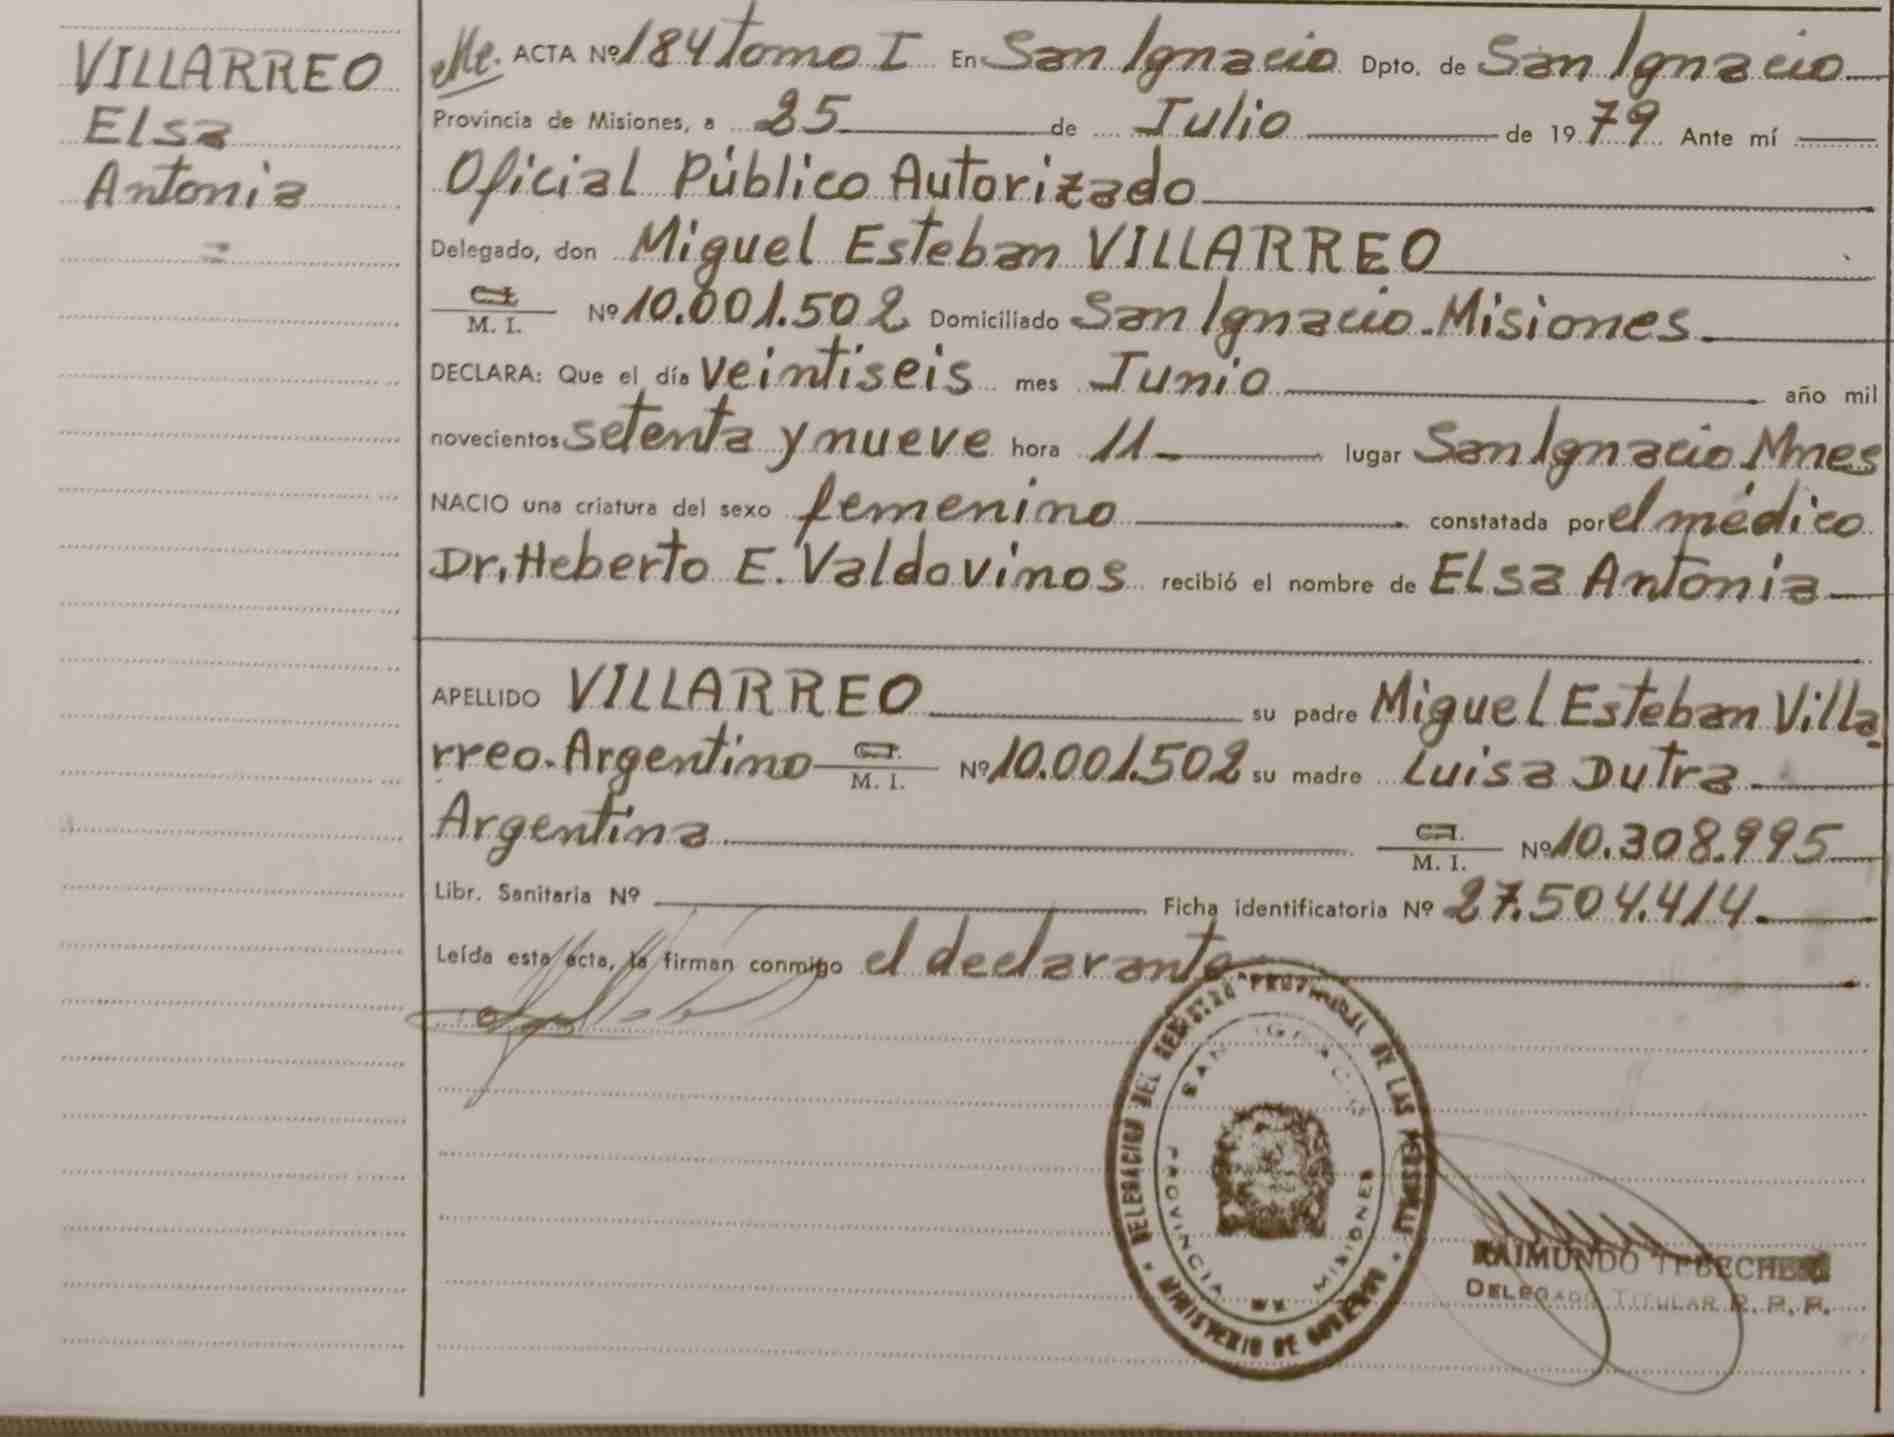 VILLARREO
Elsa
Antonia
ACTA Nº 184 tomo I En San Ignacio Dpto. de San Ignacio
Provincia de Misiones, a 25 de Julio de 1979 Ante mí
Oficial Público Autorizado
Delegado, don Miguel Esteban VILLARREO
C.I.
M. I. Nº 10.001.502 Domiciliado San Ignacio - Misiones
DECLARA: Que el día veintiseis mes Junio año mil
novecientos setenta y nueve hora 11 lugar San Ignacio Mnes
NACIO una criatura del sexo femenino constatada por el médico
Dr. Heberto E. Valdovinos recibió el nombre de Elsa Antonia
APELLIDO VILLARREO su padre Miguel Esteban Villa
rreo. Argentino C.I. M. I. Nº 10.001.502 su madre Luisa Dutra
Argentina C.I. M. I. Nº 10.308.995
Libr. Sanitaria Nº Ficha identificatoria Nº 27.504.414
Leída esta acta, la firman conmigo el declarante
DELEGACION DEL REGISTRO PROVINCIAL DE LAS PERSONAS
SAN IGNACIO
PROVINCIA DE MISIONES
MINISTERIO DE GOBIERNO
RAIMUNDO
DELEGADO TITULAR R. P. P.